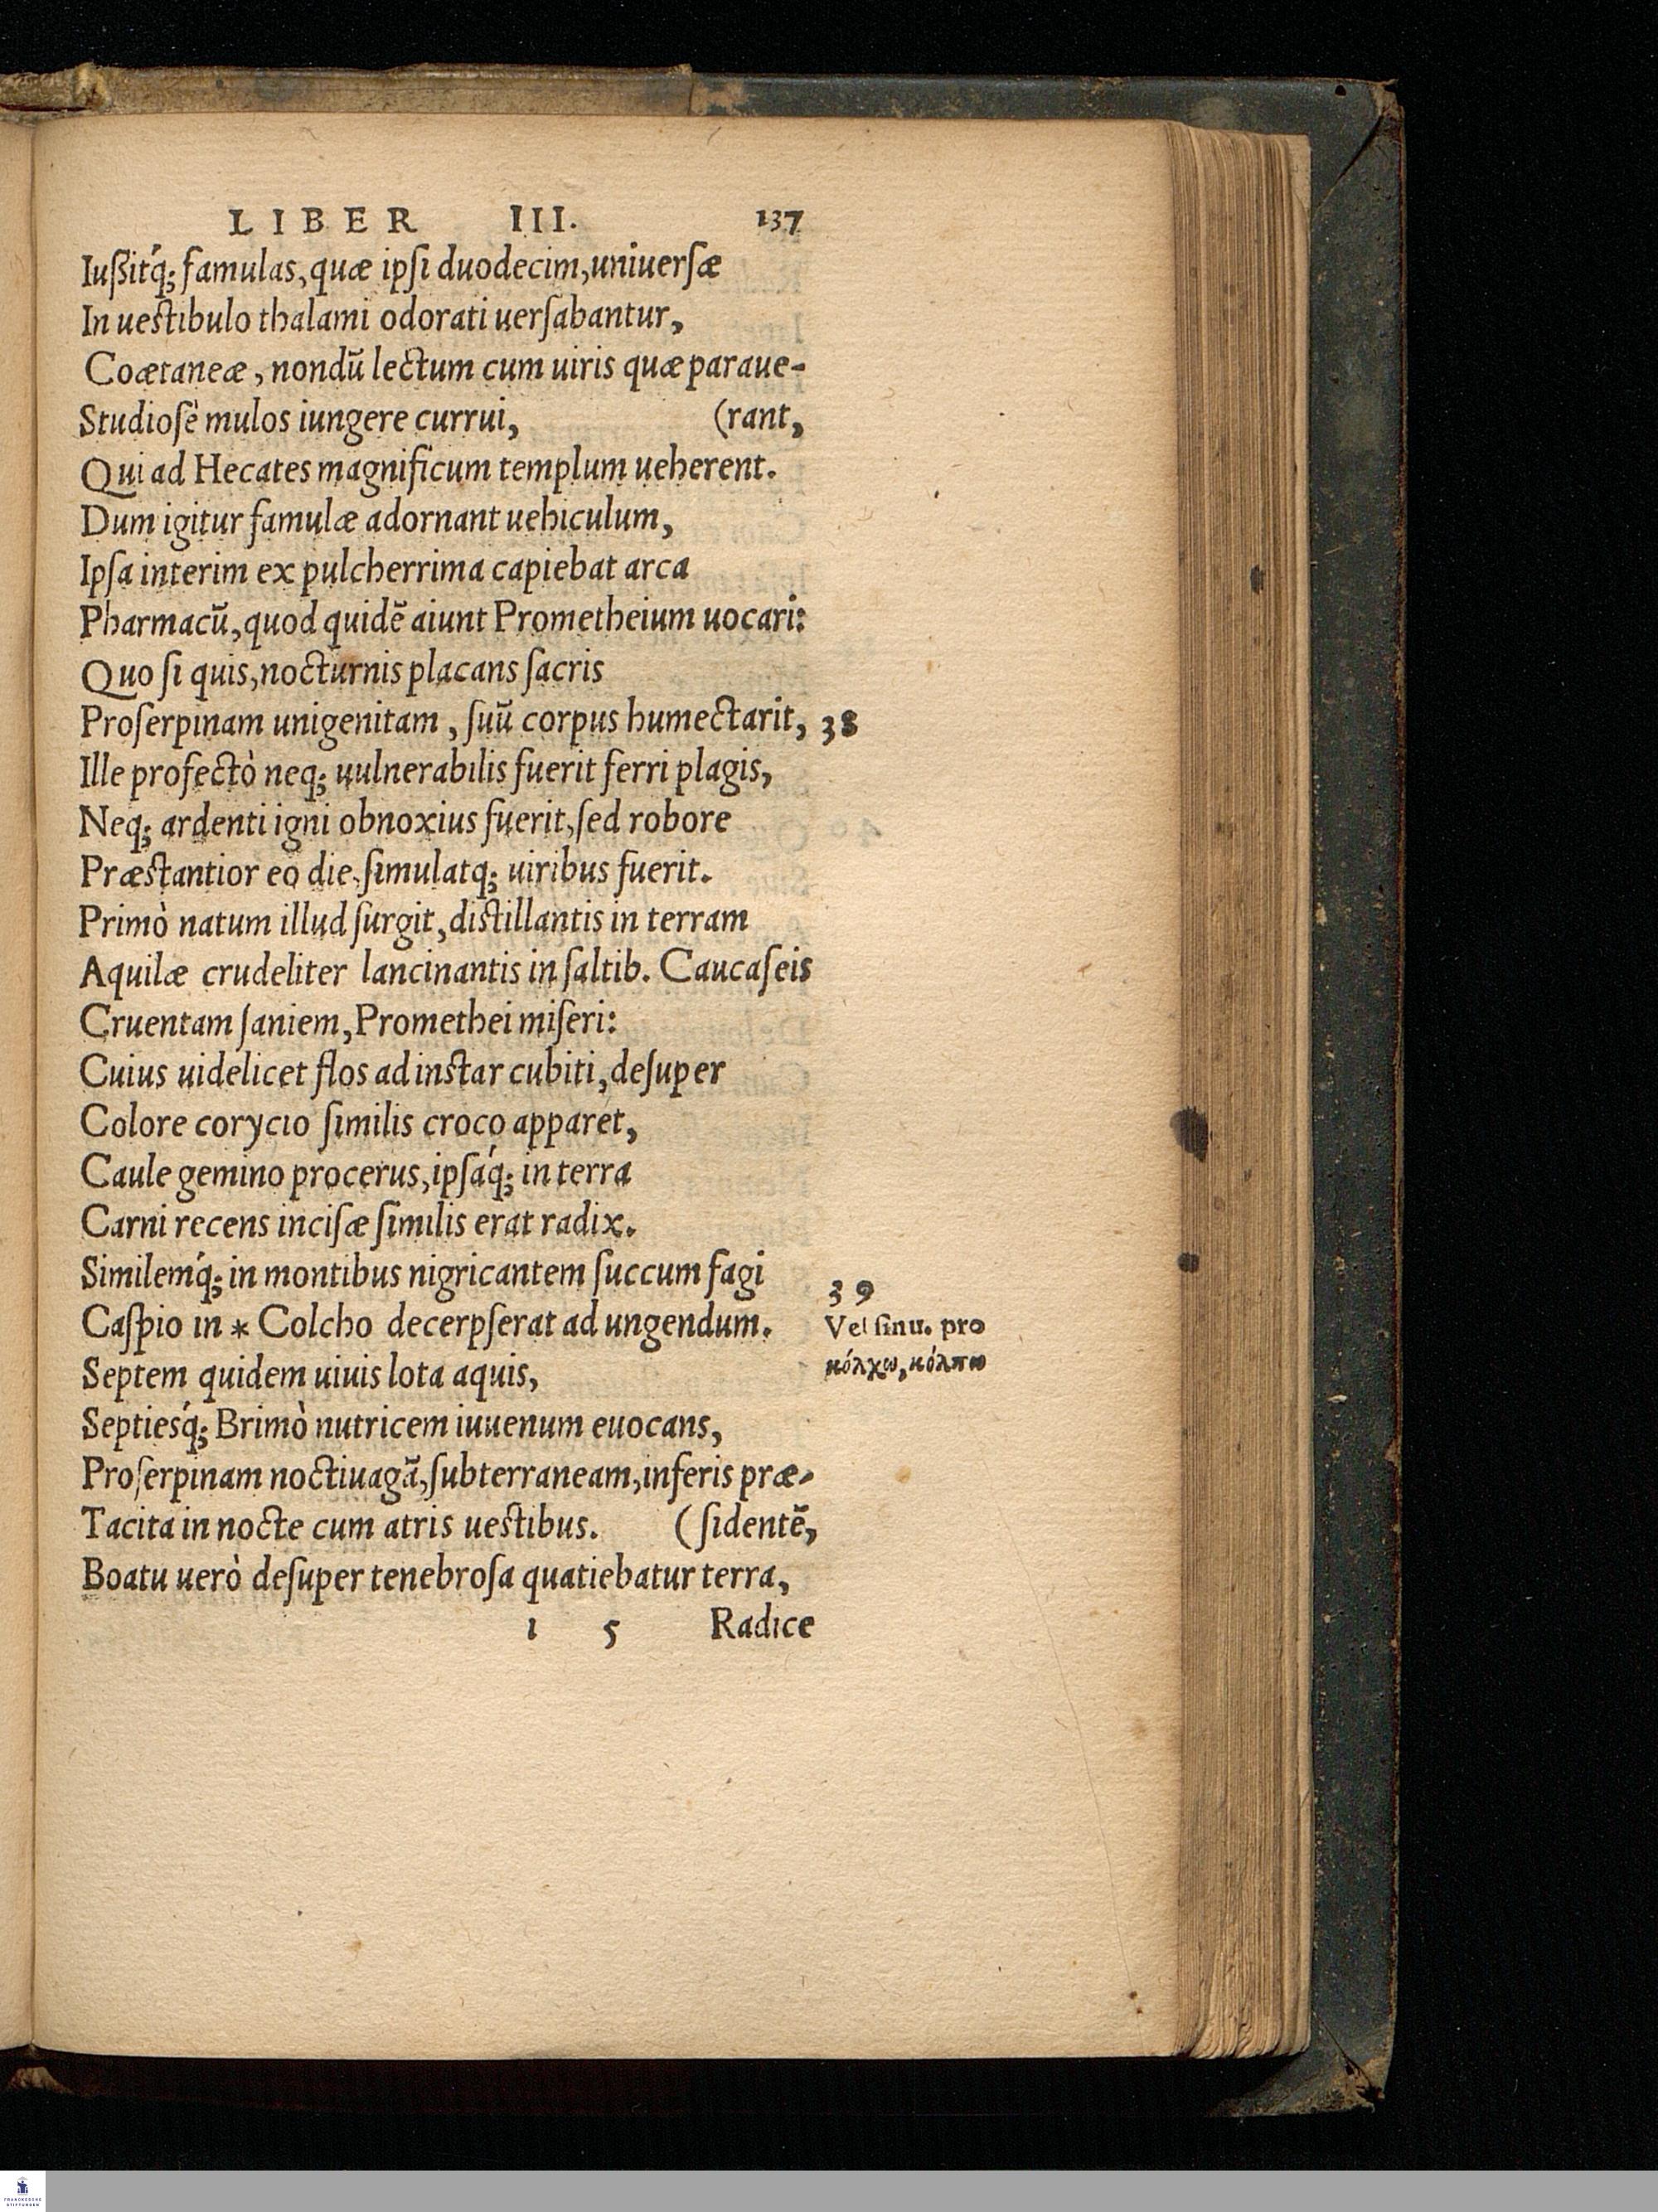 LIBER III. 137
Iuſsitq́; famulas, quæ ipſi duodecim, uniuerſæ
In ueſtibulo thalami odorati uerſabantur,
Coætaneæ, nondū lectum cum uiris quæ paraue-
Studioſè mulos iungere currui, (rant,
Qui ad Hecates magnificum templum ueherent.
Dum igitur famulæ adornant uehiculum,
Ipſa interim ex pulcherrima capiebat arca
Pharmacū, quod quidē aiunt Prometheium uocari:
Quo ſi quis, nocturnis placans ſacris
Proſerpinam unigenitam, ſuū corpus humectarit, 38
Ille profectò neq; uulnerabilis fuerit ferri plagis,
Neq; ardenti igni obnoxius fuerit, ſed robore
Præſtantior eo die, ſimulatq; uiribus fuerit.
Primò natum illud ſurgit, diſtillantis in terram
Aquilæ crudeliter lancinantis in ſaltib. Caucaſeis
Cruentam ſaniem, Promethei miſeri:
Cuius uidelicet flos ad inſtar cubiti, deſuper
Colore corycio ſimilis croco apparet,
Caule gemino procerus, ipſaq́; in terra
Carni recens inciſæ ſimilis erat radix.
Similemq́; in montibus nigricantem ſuccum fagi
39
Caſpio in * Colcho decerpſerat ad ungendum. Vel ſinu. pro
Septem quidem uiuis lota aquis, κόλχω, κόλπω
Septiesq́; Brimò nutricem iuuenum euocans,
Proſerpinam noctiuagā, ſubterraneam, inferis præ-
Tacita in nocte cum atris ueſtibus. (ſidentē,
Boatu uerò deſuper tenebroſa quatiebatur terra,
i 5 Radice
FRANCKESCHE
STIFTUNGEN